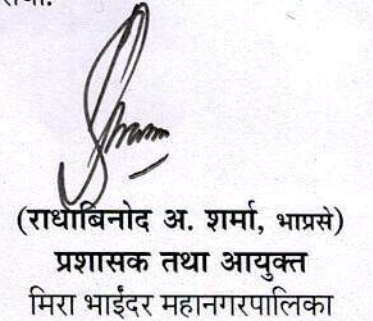 (राधाबिनोद अ. शर्मा, भाप्रसे)
प्रशासक तथा आयुक्त
मिरा भाईंदर महानगरपालिका